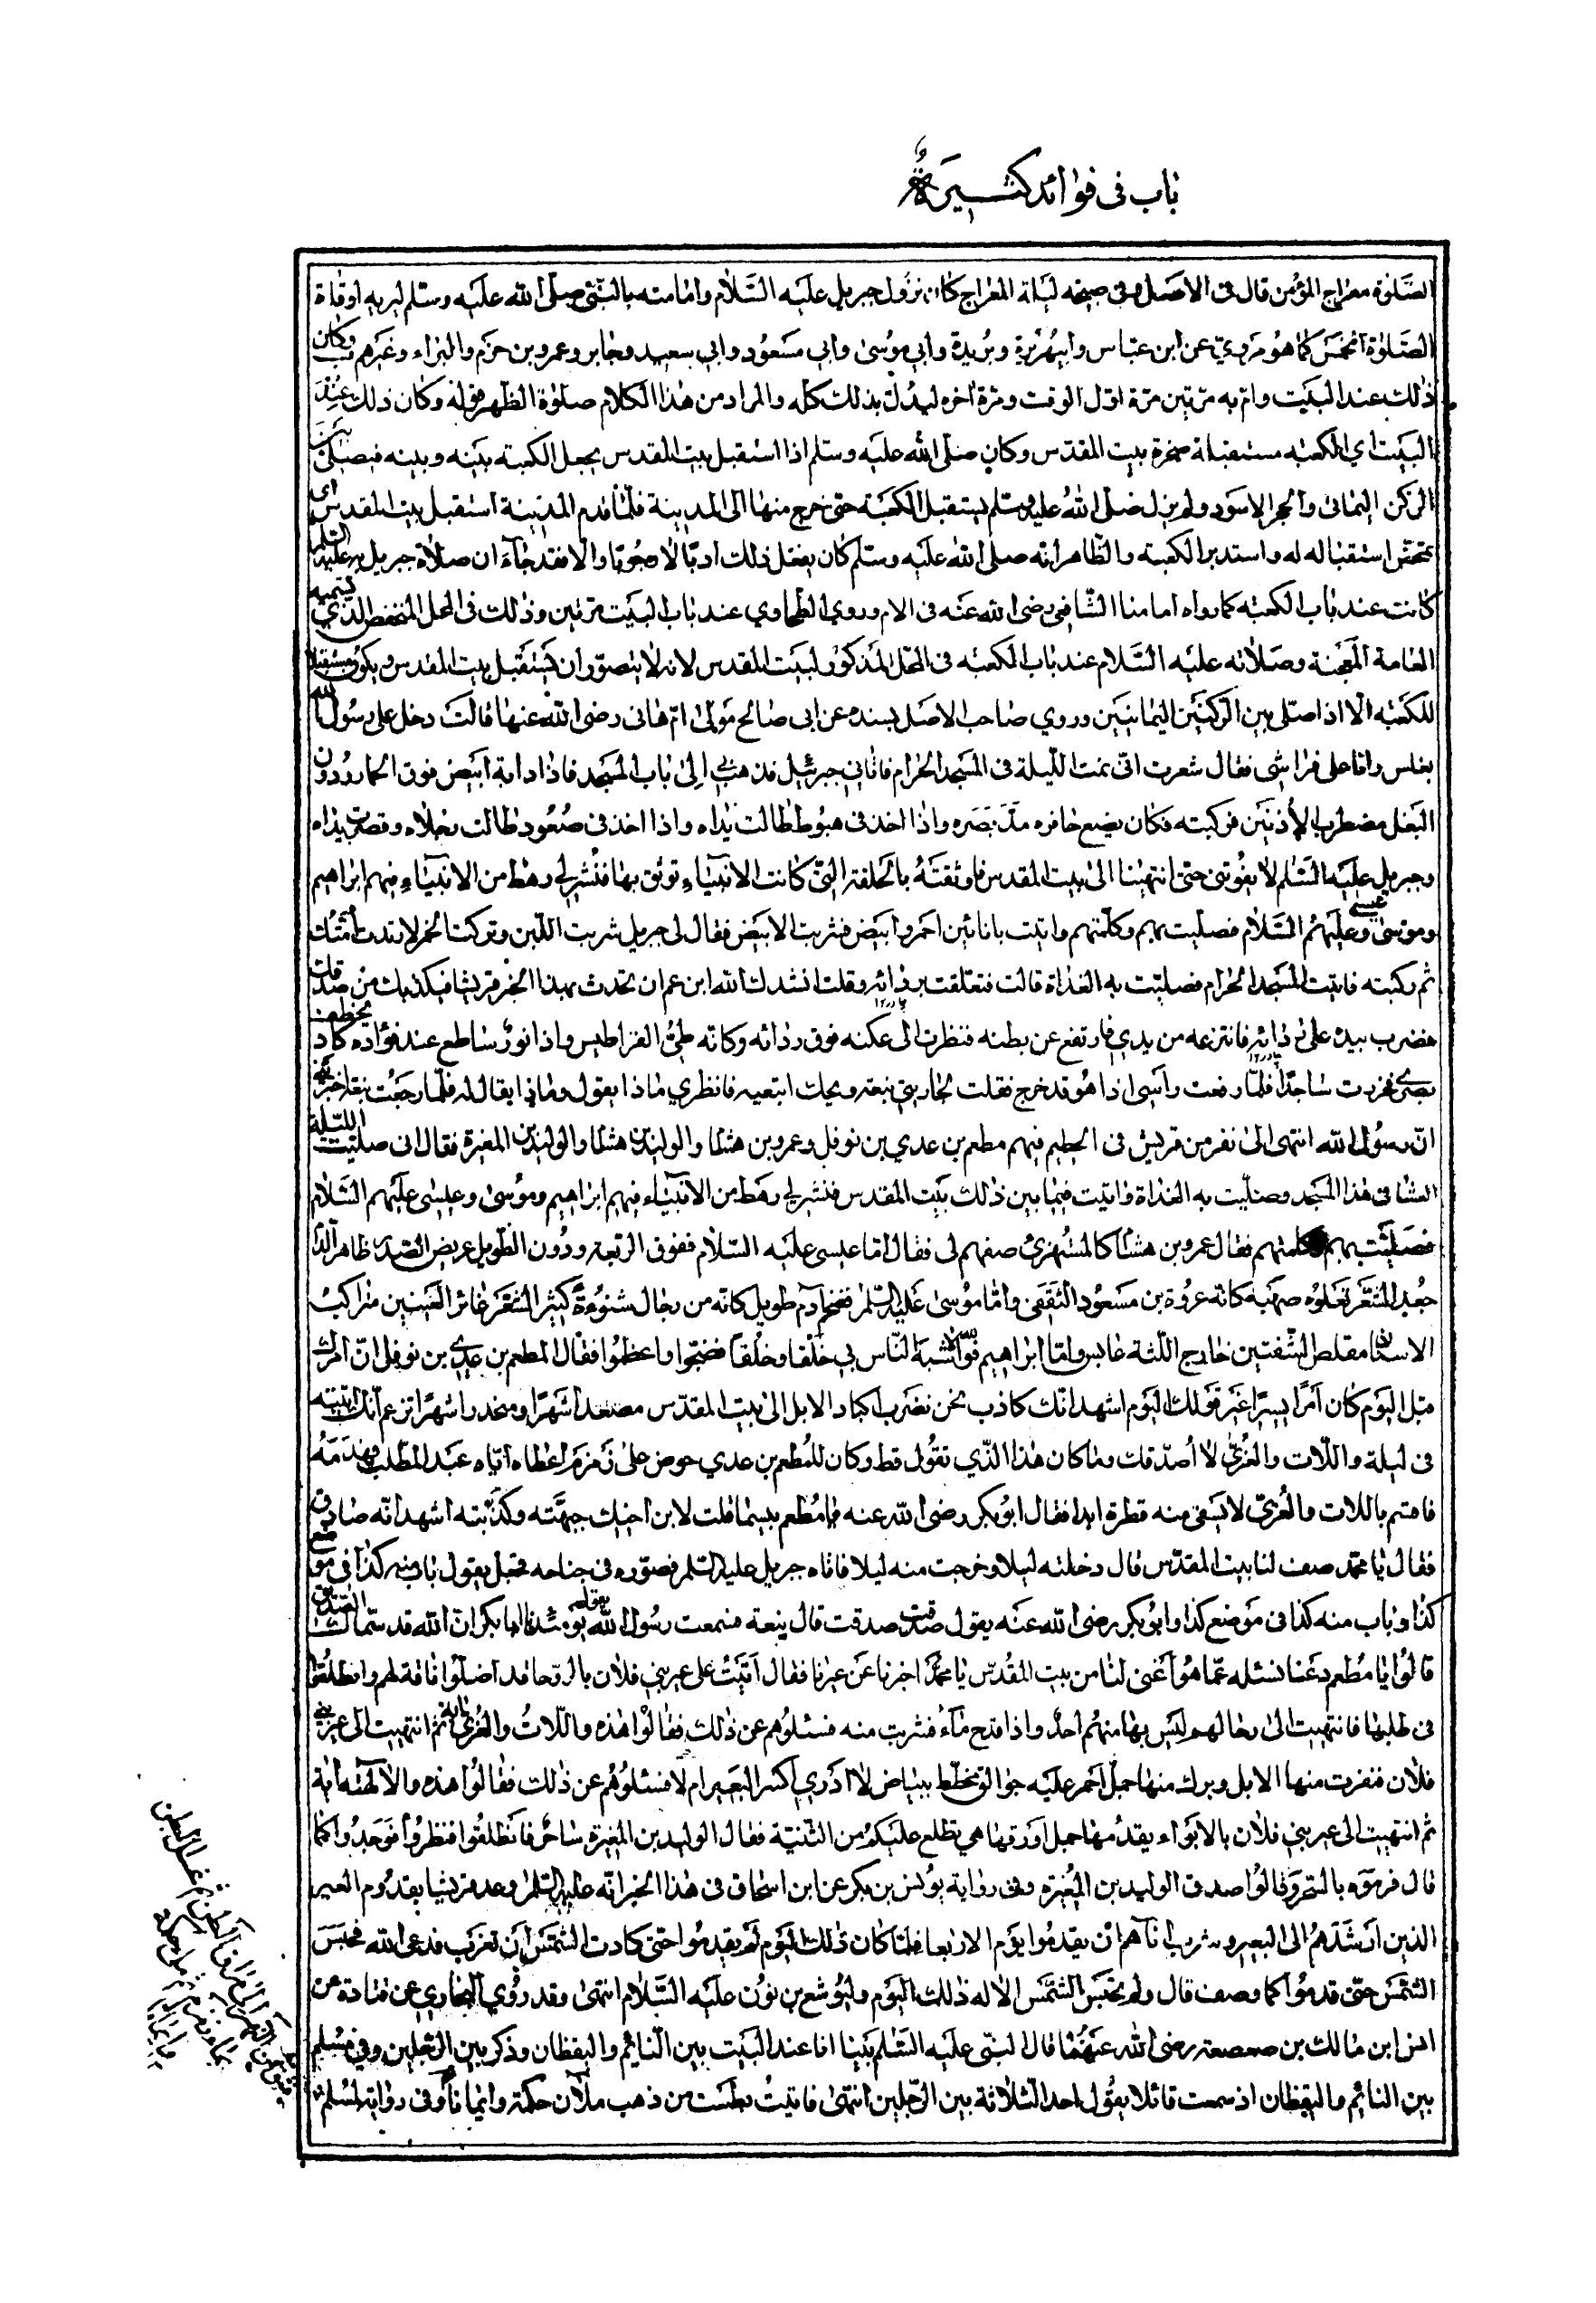 باب في فوائد كثيرة
الصلوة معراج المؤمن قال في الاصل وفي صبيحه ليلة المعراج كان نزول جبريل عليه السلام وامامته بالنبي صلى الله عليه وسلم ليريه اوقات
الصلوة الخمس كما هو مروي عن ابن عباس وابيهريرة وبريدة وابي موسى وابي مسعود وابي سعيد وجابر وعمرو بن حزم والبراء وغيرهم وكان
ذلك عند البيت وام به مرتين مرة اول الوقت ومرة آخره ليدل بذلك كله والمراد من هذا الكلام صلوة الظهر قوله وكان ذلك عند
البيت اي الكعبه مستقبلة صخرة بيت المقدس وكان صلى الله عليه وسلم اذا استقبل بيت المقدس يجعل الكعبه بينه وبينه فيصلى بين
الركن اليماني والحجر الاسود ولم يزل صلى الله عليه وسلم يستقبل الكعبة حتى خرج منها الى المدينة فلما قدم المدينة استقبل بيت المقدس اي
تمحض استقباله له واستدبر الكعبة والظاهر انه صلى الله عليه وسلم كان يفعل ذلك ادبا لا وجوبا والا فقد جاء ان صلاة جبريل به عليه السلم
كانت عند باب الكعبه كما رواه امامنا الشافعي رضى الله عنه في الام وروي الطحاوي عند باب البيت مرتين وذلك في المحل المنخفض الذي تسميه
العامة المعجنة وصلاته عليه السلام عند باب الكعبه في المحل المذكور لبيت المقدس لانه لا يتصور ان يستقبل بيت المقدس ويكون مستقبلا
للكعبه الا اذا صلى بين الركنين اليمانيين وروي صاحب الاصل بسنده عن ابي صالح مولى ام هاني رضى الله عنها قالت دخل علي رسول الله
بغلس وانا على فراشي فقال شعرت اني نمت الليلة في المسجد الحرام فاتاني جبرئيل فذهب بي الى باب المسجد فاذا دابة ابيض فوق الحمار ودون
البغل مضطرب الاذنين فركبته فكان يضع حافره مد بصره واذا اخذ في هبوط طالت يداه واذا اخذ في صعود طالت رجلاه وقصرت يداه
وجبريل عليه السلم لا يفوتني حتى انتهينا الى بيت المقدس فاوثقته بالحلقة التي كانت الانبياء توثق بها فنشر لي رهط من الانبياء فيهم ابراهيم
وموسى وعيسى عليهم السلام فصليت بهم وكلمتهم واتيت بانائين احمر وابيض فشربت الابيض فقال لي جبريل شربت اللبن وتركت الخمر لارتدت امتك
ثم ركبته فاتيت المسجد الحرام فصليت به الغداة قالت فتعلقت بردائه وقلت انشدك الله ابن عم ان تحدث بهذا الخبر قريشا فيكذبك من صدقك
فضرب بيده على ردائه فانتزعه من يدي فارتفع عن بطنه فنظرت الى عكنه فوق ردائه وكانه طي القراطيس واذا نور ساطع عند فؤاده كاد يخطف
بصري فخررت ساجدا فلما رفعت راسى اذا هو قد خرج فقلت لجاريتي نبعه ويحك اتبعيه فانظري ماذا يقول وماذا يقال له فلما رجعت نبعه اخبرتني
ان رسول الله انتهى الى نفر من قريش في الحطيم فيهم مطعم بن عدي بن نوفل وعمرو بن هشام والوليد بن المغيرة فقال اني صليت الليلة
العشا في هذا المسجد وصليت به الغداة واتيت فيما بين ذلك بيت المقدس فنشر لي رهط من الانبياء فيهم ابراهيم وموسى وعيسى عليهم السلام
فصليت بهم وكلمتهم فقال عمرو بن هشام كالمستهزئ صفهم لي فقال اما عيسى عليه السلام ففوق الربعة ودون الطويل عريض الصدر ظاهر الدم
جعد الشعر تعلوه صهبة كانه عروة بن مسعود الثقفي واما موسى عليه السلم فضخم آدم طويل كانه من رجال شنوءة كثير الشعر غائر العينين متراكب
الاسنان مقلص الشفتين خارج اللثة عابس واما ابراهيم فوالله لانا اشبه الناس بي خلقا وخلقا فضجوا واعظموا فقال المطعم بن عدي بن نوفل ان امرك
قبل اليوم كان امرا يسيرا غير قولك اليوم اشهد انك كاذب نحن نضرب اكباد الابل الى بيت المقدس مصعدا شهرا ومنحدرا شهرا تزعم انك اتيته
في ليلة واللات والعزى لا اصدقك وما كان هذا الذي تقول قط وكان للمطعم بن عدي حوض على زمزم اعطاه اياه عبد المطلب فهدمه
فاقسم باللات والعزى لا يسقى منه قطرة ابدا فقال ابو بكر رضى الله عنه يا مطعم بئسما قلت لابن اخيك جبهته وكذبته اشهد انه صادق
فقال يا محمد صف لنا بيت المقدس قال دخلته ليلا وخرجت منه ليلا فاتاه جبريل عليه السلم فصوره في جناحه فجعل يقول باب منه كذا في موضع
كذا وباب منه كذا في موضع كذا وابو بكر رضى الله عنه يقول صدقت صدقت قال نبعة فسمعت رسول الله يقول يومئذ يا ابا بكر ان الله قد سماك الصديق
قالوا يا مطعم دعنا نسئله عما هو اغنى لنا من بيت المقدس يا محمد اخبرنا عن عيرنا فقال اتيت على عير بني فلان بالروحا قد اضلوا ناقة لهم وانطلقوا
في طلبها فانتهيت الى رحالهم ليس بها منهم احد واذا قدح ماء فشربت منه فسئلوهم عن ذلك فقالوا هذه واللات والعزى اية ثم انتهيت الى عير بني
فلان فنفرت منها الابل وبرك منها جمل احمر عليه جوالق مخطط ببياض لا ادري اكسر البعير ام لا فسئلوهم عن ذلك فقالوا هذه والالهة اية
ثم انتهيت الى عير بني فلان بالابواء يقدمها جمل اورق ها هي تطلع عليكم من الثنية فقال الوليد بن المغيرة ساحر فانطلقوا فنظروا فوجدوا كما
قال فرموه بالسحر وقالوا صدق الوليد بن المغيرة وفي رواية يونس بن بكر عن ابن اسحاق في هذا الخبر انه عليه السلم وعد قريشا بقدوم العير
الذين ارشدهم الى البعير وشرب اناءهم ان يقدموا يوم الاربعا فلما كان ذلك اليوم لم يقدموا حتى كادت الشمس ان تغرب فدعى الله فحبس
الشمس حتى قدموا كما وصف قال ولم يحتبس الشمس الا له ذلك اليوم وليوشع بن نون عليه السلام انتهى وقد روي البخاري عن قتادة عن
انس ابن مالك بن صعصعه رضى الله عنهما قال النبي عليه السلم بينا انا عند البيت بين النائم واليقظان وذكر بين الرجلين وفي مسلم
بين النائم واليقظان اذ سمعت قائلا يقول احد الثلاثة بين الرجلين انتهى فاتيت بطست من ذهب ملآن حكمة وايمانا وفي رواية لمسلم